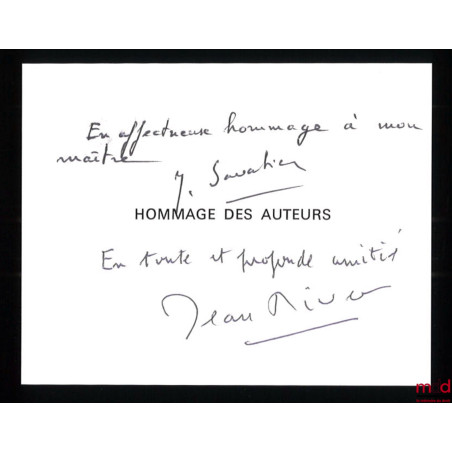 En affectueuse hommage à mon
maître
J. Savatier
HOMMAGE DES AUTEURS
En toute et profonde amitié
Jean Rivero
mod